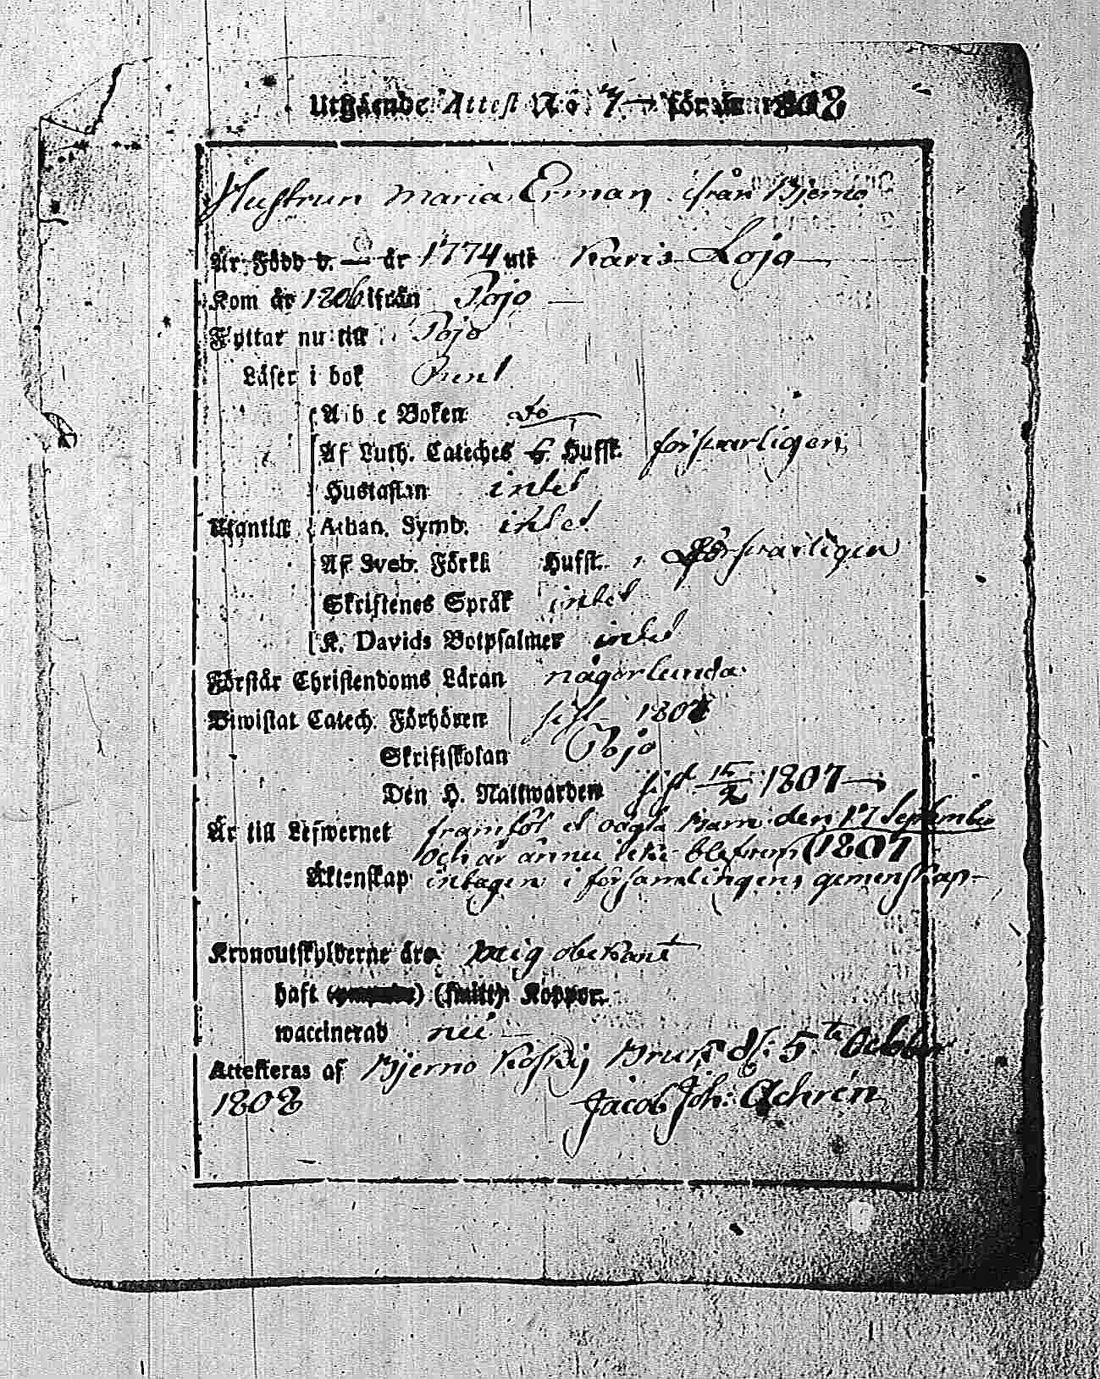 Utgående Attest No 7 — för år 1808
Hustrun Maria Erman ifrån Bjerno
Är Född d. — år 1774 uti Karis Lojo —
Kom år 1806 ifrån Pojo —
Flyttar nu till Pojo
Läser i bok
A b c Boken do
Af Luth. Cateches Hufst. försvarligen
Hustaflan intet
Utantill Athan. Symb. intet
Af Sveb. Förkl. Hufst. försvarligen
Skriftenes Språk intet
K. Davids Botpsalmer intet
Förstår Christendoms Läran någorlunda
Biwistat Catech. Förhören sist
Skriftskolan Pojo
Den H. Nattwarden sist 1807 —
Är till Lefwernet framföt et oägta Barn den 17 September
och är ännu icke blefven (1807
Äktenskap intagen i församlingens gemenskap —
Kronoutskylderne äro mig obekant
haft (smitt) Koppor.
waccinerad nei —
Attesteras af Bjerno Kosky Bruk d: 5te October
1808 Jacob Joh: Achrén